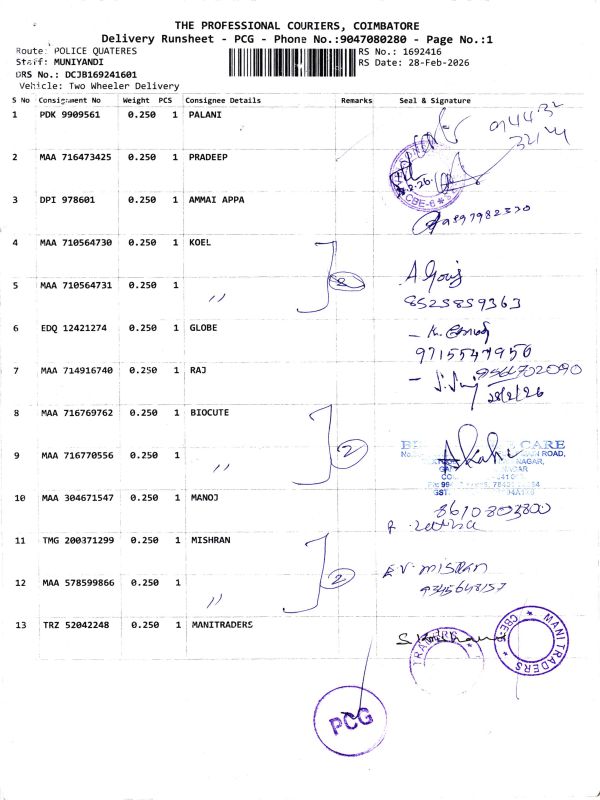 THE PROFESSIONAL COURIERS, COIMBATORE
Delivery Runsheet - PCG - Phone No.:9047080280 - Page No.:1
Route: POLICE QUATERES
RS No.: 1692416
Staff: MUNIYANDI
RS Date: 28-Feb-2026
DRS No.: DCJB169241601
Vehicle: Two Wheeler Delivery
S No Consignment No Weight PCS Consignee Details Remarks Seal & Signature
1 PDK 9909561 0.250 1 PALANI
2 MAA 716473425 0.250 1 PRADEEP
CBE-6
3 DPI 978601 0.250 1 AMMAI APPA
4 MAA 710564730 0.250 1 KOEL
5 MAA 710564731 0.250 1 〃
8525859363
6 EDQ 12421274 0.250 1 GLOBE
9715547950
7 MAA 714916740 0.250 1 RAJ
9566702090
28/2/26
8 MAA 716769762 0.250 1 BIOCUTE
2
CARE
9 MAA 716770556 0.250 1 〃
10 MAA 304671547 0.250 1 MANOJ
8610803800
11 TMG 200371299 0.250 1 MISHRAN
2
E.V. MISRAN
12 MAA 578599866 0.250 1 〃
9345648157
13 TRZ 52042248 0.250 1 MANITRADERS
MANI TRADERS
CBE-6
TRADERS
PCG